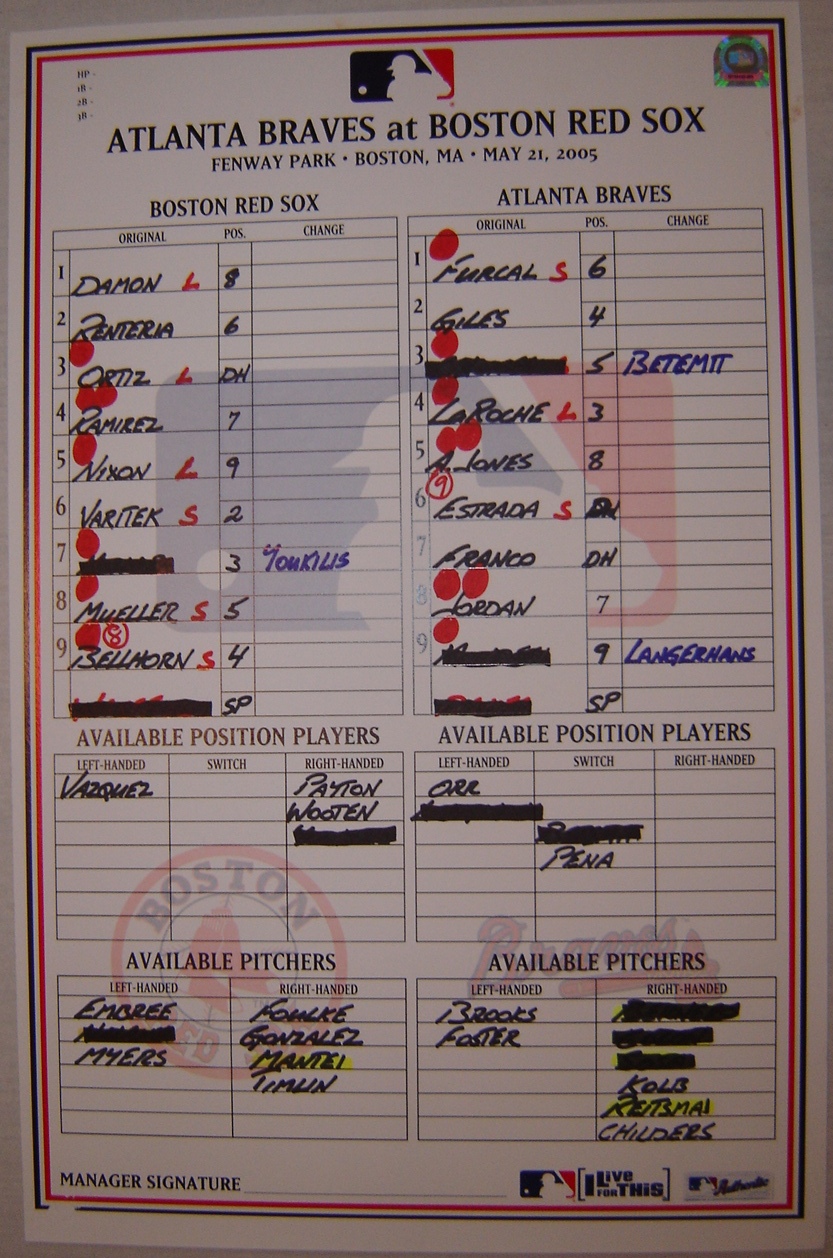 HP -
1B -
2B -
3B -
ATLANTA BRAVES at BOSTON RED SOX
FENWAY PARK · BOSTON, MA · MAY 21, 2005
BOSTON RED SOX
ORIGINAL POS. CHANGE
1 DAMON L 8
2 RENTERIA 6
3 ORTIZ L DH
4 RAMIREZ 7
5 NIXON L 9
6 VARITEK S 2
7 3 YOUKILIS
8 MUELLER S 5
9 BELLHORN S 4
8
SP
ATLANTA BRAVES
ORIGINAL POS. CHANGE
1 FURCAL S 6
2 GILES 4
3 5 BETEMIT
4 LAROCHE L 3
5 A. JONES 8
9
6 ESTRADA S
7 FRANCO DH
8 JORDAN 7
9 9 LANGERHANS
SP
AVAILABLE POSITION PLAYERS
LEFT-HANDED SWITCH RIGHT-HANDED
VAZQUEZ PAYTON
WOOTEN
AVAILABLE POSITION PLAYERS
LEFT-HANDED SWITCH RIGHT-HANDED
ORR
PENA
BOSTON
RED
Braves
AVAILABLE PITCHERS
LEFT-HANDED RIGHT-HANDED
EMBREE FOULKE
GONZALEZ
MYERS MANTEI
TIMLIN
AVAILABLE PITCHERS
LEFT-HANDED RIGHT-HANDED
BROOKS
FOSTER
KOLB
REITSMA
CHILDERS
MANAGER SIGNATURE
I Live FOR THIS
Authentic